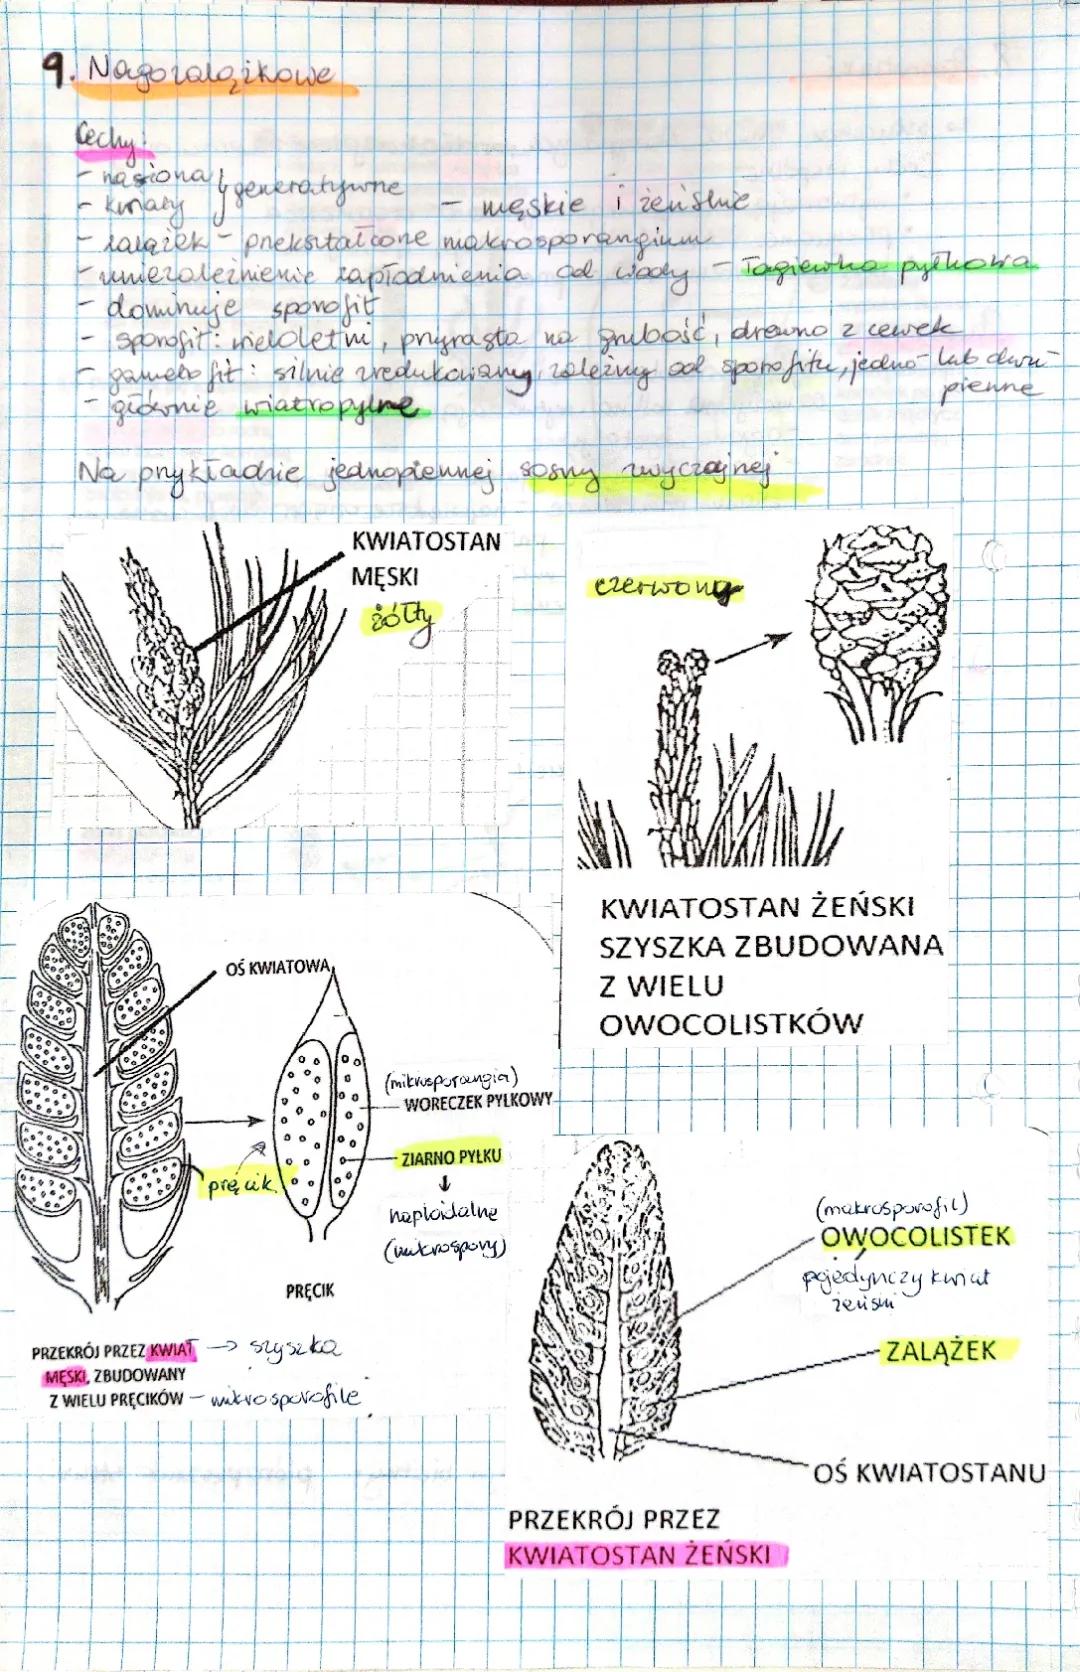 9. Nagozalążkowe
Cechy:
- nasiona } generatywne
- kwiaty - męskie i żeńskie
- zalążek - przekształcone makrosporangium
- uniezależnienie zapłodnienia od wody - łagiewka pyłkowa
- dominuje sporofit
- sporofit: wieloletni, przyrasta na grubość, drewno z cewek
- gametofit: silnie zredukowany, zależny od sporofitu, jedno- lub dwu-
pienne
- głównie wiatropylne
Na przykładzie jednopiennej sosny zwyczajnej
KWIATOSTAN
MĘSKI
żółty
czerwony
KWIATOSTAN ŻEŃSKI
SZYSZKA ZBUDOWANA
Z WIELU
OWOCOLISTKÓW
OŚ KWIATOWA
(mikrosporangia)
WORECZEK PYŁKOWY
ZIARNO PYŁKU
↓
haploidalne
(mikrospory)
pręcik
PRĘCIK
PRZEKRÓJ PRZEZ KWIAT → szyszka
MĘSKI, ZBUDOWANY
Z WIELU PRĘCIKÓW - mikrosporofile
(makrosporofil)
OWOCOLISTEK
pojedynczy kwiat
żeński
ZALĄŻEK
OŚ KWIATOSTANU
PRZEKRÓJ PRZEZ
KWIATOSTAN ŻEŃSKI